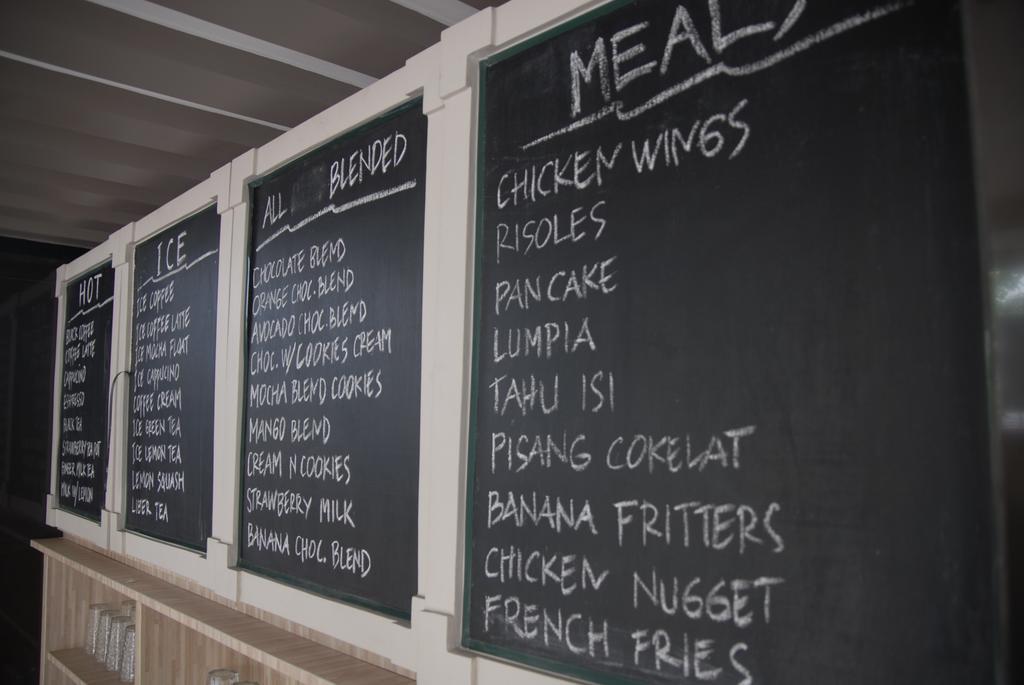 HOT
BLACK COFFEE
COFFEE LATTE
CAPPUCINO
ESPRESSO
BLACK TEA
STRAWBERRY TEA HOT
GINGER MILK TEA
MILK W/LEMON
ICE
ICE COFFEE
ICE COFFEE LATTE
ICE MOCHA FLOAT
ICE CAPPUCINO
COFFEE CREAM
ICE GREEN TEA
ICE LEMON TEA
LEMON SQUASH
LIBER TEA
ALL BLENDED
CHOCOLATE BLEND
ORANGE CHOC. BLEND
AVOCADO CHOC. BLEND
CHOC. W/COOKIES CREAM
MOCHA BLEND COOKIES
MANGO BLEND
CREAM N COOKIES
STRAWBERRY MILK
BANANA CHOC. BLEND
MEALS
CHICKEN WINGS
RISOLES
PAN CAKE
LUMPIA
TAHU ISI
PISANG COKELAT
BANANA FRITTERS
CHICKEN NUGGET
FRENCH FRIES